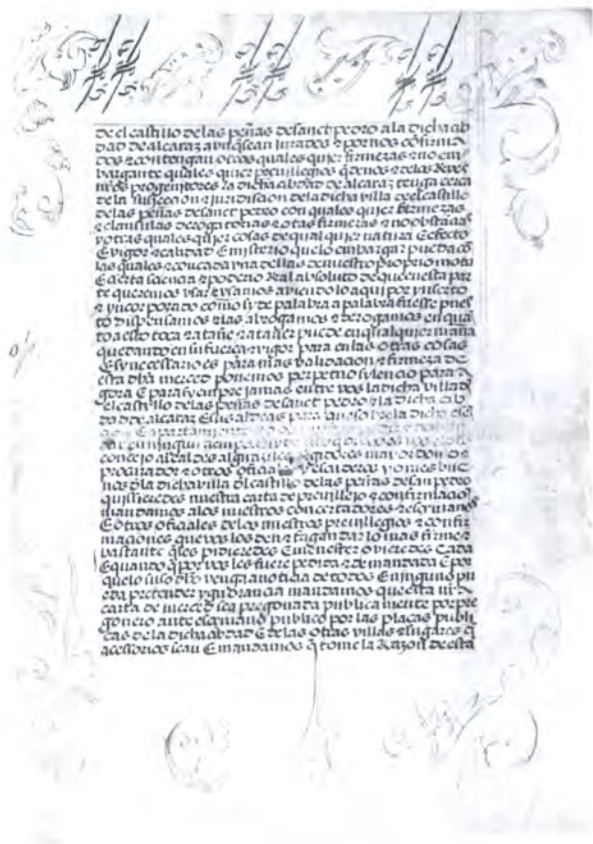 de el castillo de las peñas de sanct pedro a la dicha cib
dad de alcaraz avnq̃ sean jurados z por nos cōfirma
dos z contengan otras quales quier firmezas z no em
bargante quales quier preuillegios q̃ de nos z de los Reyes
nr̃os progenitores la dicha cibdad de alcaraz tenga cerca
de la subjecion z juridicion de la dicha villa de el castillo
de las peñas de sanct pedro con quales quier firmezas
z clausulas derogatorias z otras firmezas z no obstācias
y otras quales quier cosas de qual quier natura E efecto
E vigor z calidad E misterio que lo embargar pueda cō
las quales z con cada vna dellas de nuestro proprio motu
E cierta sciencia z poderio Real absoluto de que en esta par
te queremos vsar z vsamos aviendo lo aqui por ynserto
y yncorporado como sy de palabra a palabra fuesse pues
to dispensamos z las abrogamos z derogamos en quā
to a esto toca z atañe z atañer puede en qualquier maña
quedando en su fuerça z vigor para en las otras cosas
E sy necessario es para mas validacion z firmeza de
esta dha merced ponemos perpetuo sylencio para a
gora E para syempre jamas entre vos la dicha villa d̃
el castillo de las peñas de sanct pedro z la dicha cib
dad de alcaraz E sus aldeas para que sobre la dicha
E apartamiento
en ningun tiempo
concejo alcaldes alguaziles Regidores mayordomo z
procurador z otros oficiales escuderos y omes bue
nos d̃la dicha villa d̃l castillo de las peñas de san pedro
quissieredes nuestra carta de preuillejo z confirmacion
mandamos a los nuestros concertadores z escriuanos
E otros oficiales de los nuestros preuillegios z confir
maciones que vos los den z fagan dar lo mas firme z
bastante q̃ les pidieredes E menester ovieredes Cada
E quando q̃ por vos les fuere pedida z demandada E por
que lo suso dho venga a noticia de todos E ninguno pu
eda pretender ygnorancia mandamos que esta nr̃a
carta de merced sea pregonada publica mente por pre
gonero ante escriuano publico por las plaças publi
cas de la dicha cibdad E de las otras villas z lugares q̃
acessorios sean E mandamos q̃ tome la Razon de esta